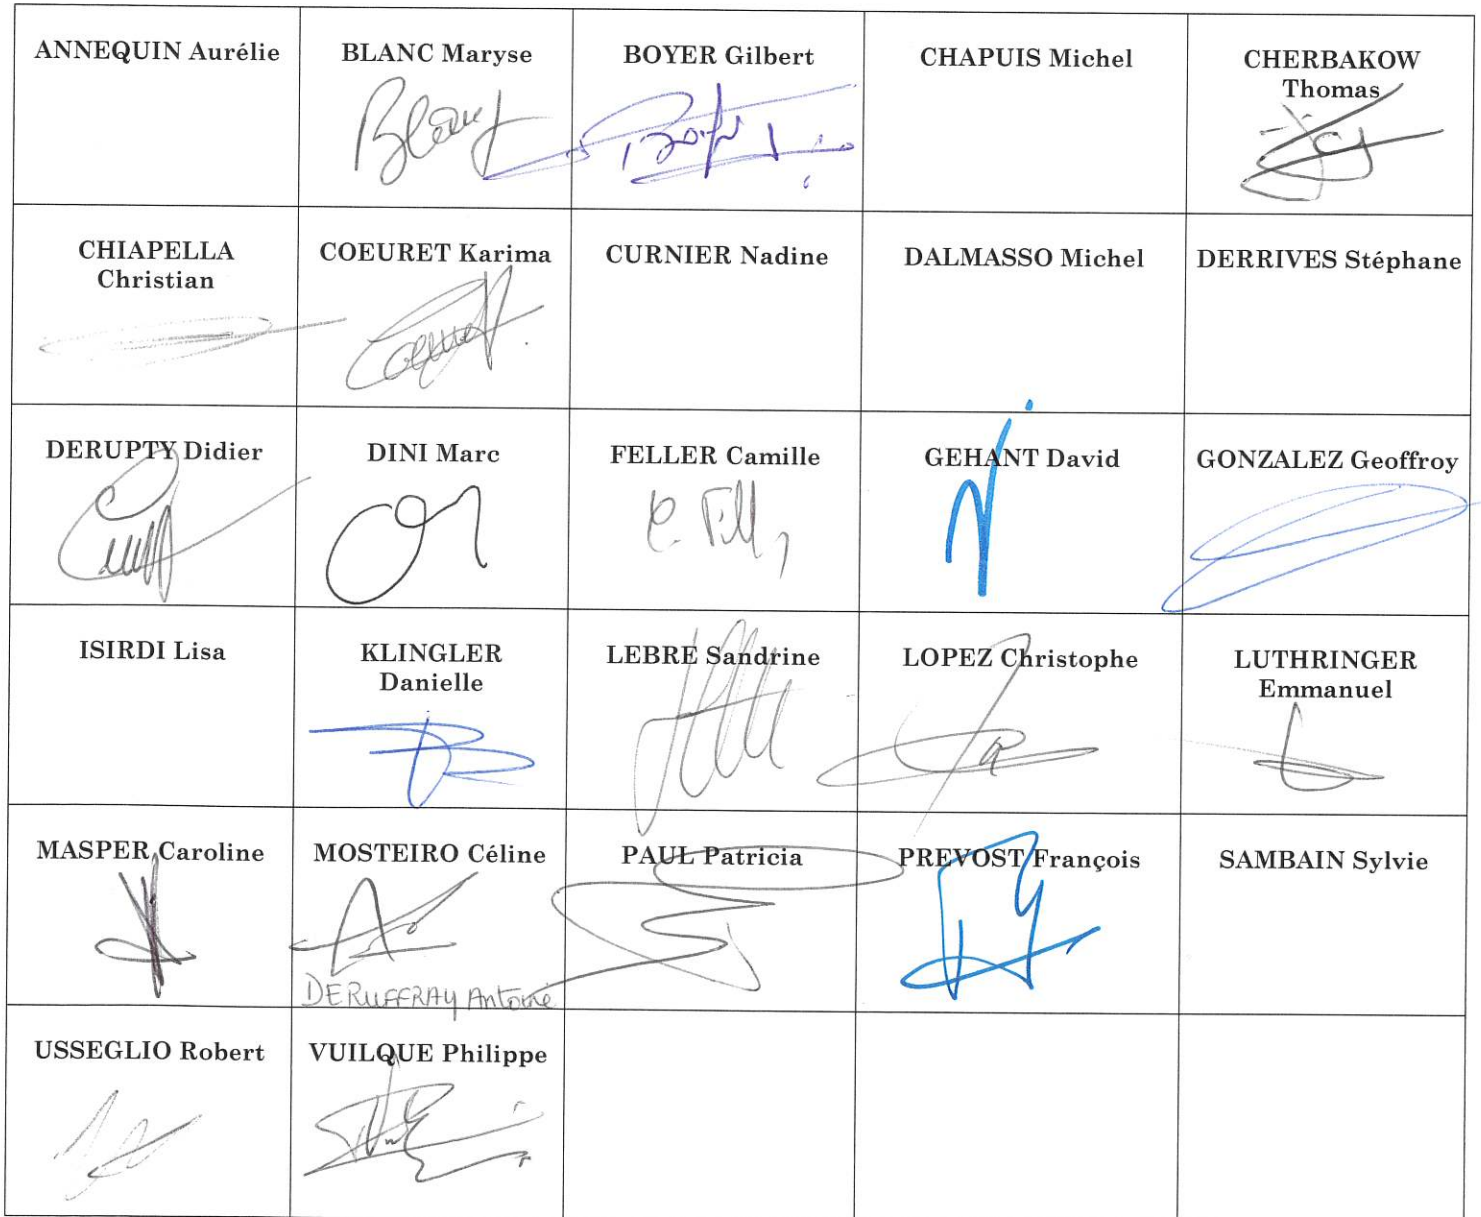 ANNEQUIN Aurélie
BLANC Maryse
BOYER Gilbert
CHAPUIS Michel
CHERBAKOW
Thomas
Blanc
CHIAPELLA
Christian
COEURET Karima
CURNIER Nadine
DALMASSO Michel
DERRIVES Stéphane
DERUPTY Didier
DINI Marc
FELLER Camille
GEHANT David
GONZALEZ Geoffroy
ISIRDI Lisa
KLINGLER
Danielle
LEBRE Sandrine
LOPEZ Christophe
LUTHRINGER
Emmanuel
MASPER Caroline
MOSTEIRO Céline
PAUL Patricia
PREVOST François
SAMBAIN Sylvie
DERUFFRAY Antoine
USSEGLIO Robert
VUILQUE Philippe